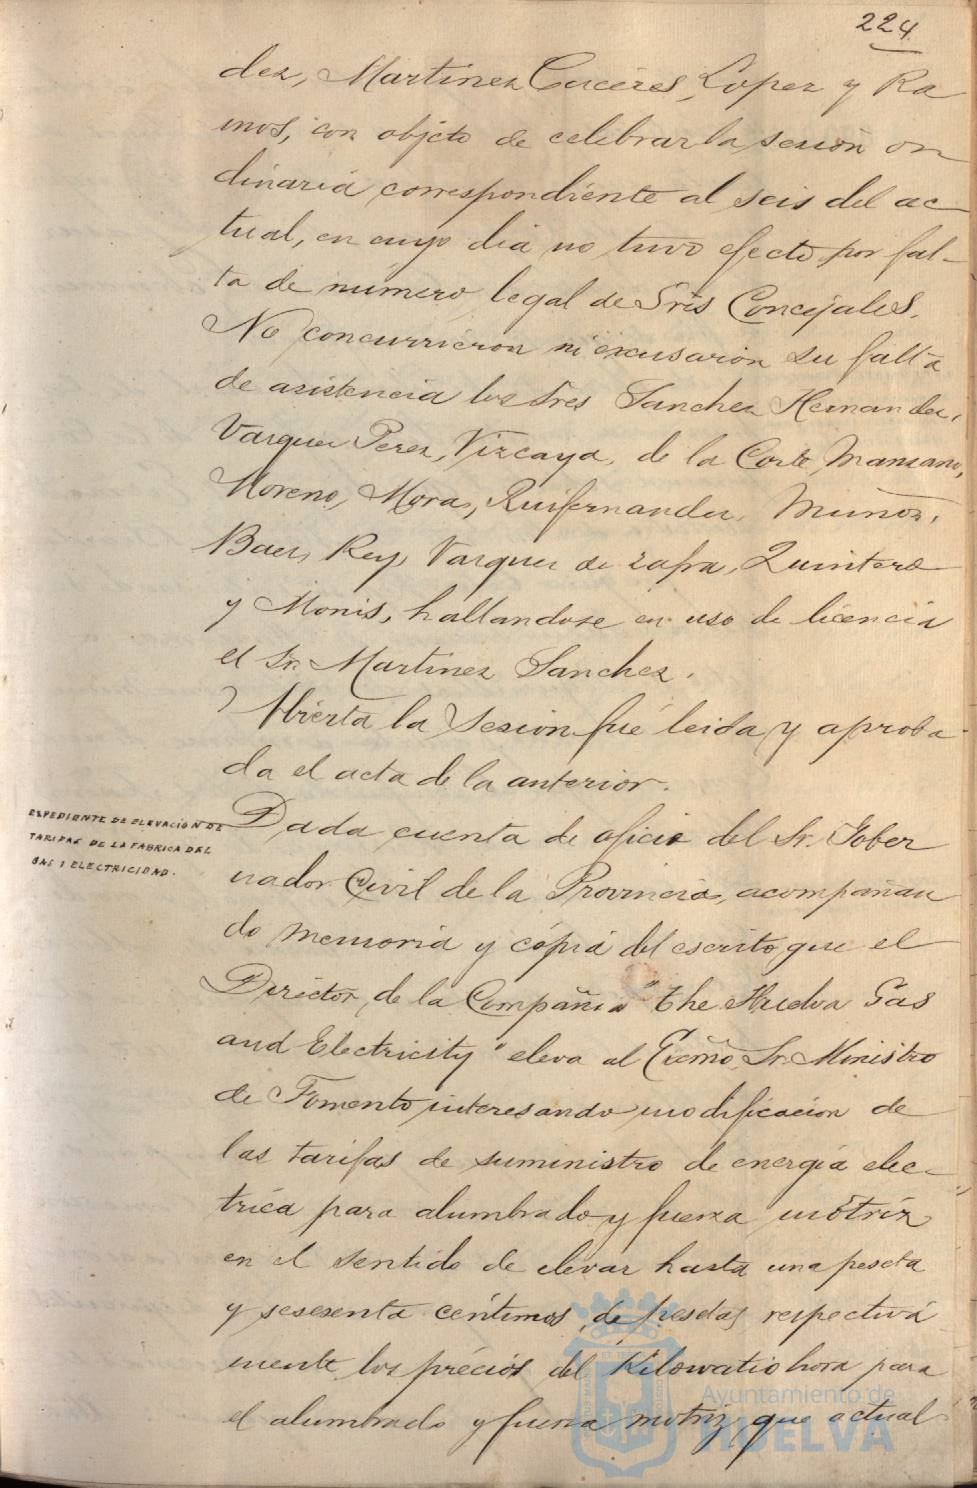 224
dez, Martinez Caceres, Lopez y Ra
mos, con objeto de celebrar la sesion or
dinaria correspondiente al seis del ac-
tual, en cuyo dia no tuvo efecto por fal-
ta de número legal de Sres Concejales.
No concurrieron ni excusaron su falta
de asistencia los Sres Sanchez Hernandez,
Vazquez Perez, Vizcaya, de la Corte, Manzano,
Moreno, Mora, Ruifernandez, Muñoz,
Baez, Rey, Vazquez de Zafra, Quintero
y Monis, hallandose en uso de licencia
el Sr. Martinez Sanchez.
Abierta la sesion fué leida y aproba
da el acta de la anterior.
EXPEDIENTE DE ELEVACIÓN DE
TARIFAS DE LA FABRICA DEL
GAS Y ELECTRICIDAD.
Dada cuenta de oficio del Sr. Gober
nador Civil de la Provincia, acompañan
do memoria y cópia del escrito que el
Director de la Compañia "The Huelva Gas
and Electricity" eleva al Excmo. Sr. Ministro
de Fomento interesando modificacion de
las tarifas de suministro de energia elec-
trica para alumbrado y fuerza motriz
en el sentido de elevar hasta una peseta
y sesesenta céntimos de pesetas respectiva
mente los précios del Kilowatio hora para
el alumbrado y fuerza motriz que actual
Ayuntamiento de
HUELVA